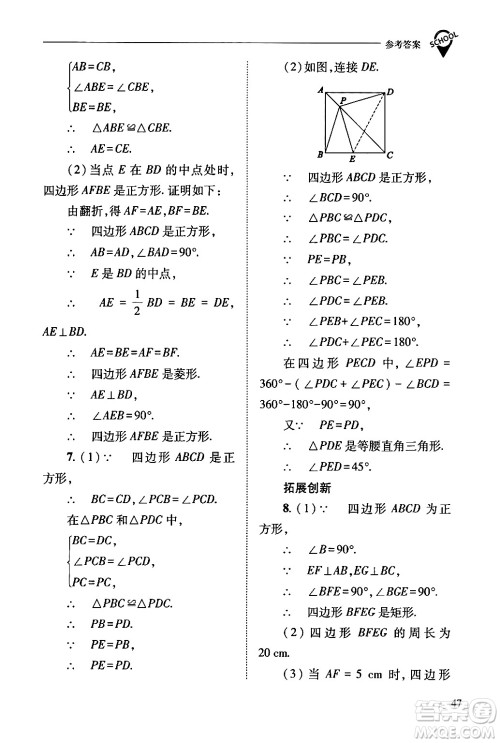 参考答案
SCHOOL
AB=CB,
∠ABE=∠CBE,
BE=BE,
∴ △ABE≌△CBE.
∴ AE=CE.
(2)当点 E 在 BD 的中点处时,
四边形 AFBE 是正方形. 证明如下:
由翻折,得 AF=AE,BF=BE.
∵ 四边形 ABCD 是正方形,
∴ AB=AD,∠BAD=90°.
∵ E 是 BD 的中点,
∴ AE = 1/2 BD = BE = DE,
AE⊥BD.
∴ AF=BF=AE=BE.
∴ 四边形 AFBE 是菱形.
∵ AE⊥BD,
∴ ∠AEB=90°.
∴ 四边形 AFBE 是正方形.
7. (1)∵ 四边形 ABCD 是正
方形,
∴ BC=CD,∠BCP=∠DCP.
在△PBC 和△PDC 中,
BC=DC,
∠PCB=∠PCD,
PC=PC,
∴ △PBC≌△PDC.
∴ PB=PD.
∵ PE=PB,
∴ PE=PD.
(2)如图,连接 DE.
A
D
P
B
E
C
∵ 四边形 ABCD 是正方形,
∴ ∠BCD=90°.
∵ △PBC≌△PDC,
∴ ∠PBC=∠PDC.
∵ PE=PB,
∴ ∠PBC=∠PEB.
∴ ∠PDC=∠PEB.
∵ ∠PEB+∠PEC=180°,
∴ ∠PDC+∠PEC=180°.
在四边形 PECD 中,∠EPD =
360°-(∠PDC+∠PEC)-∠BCD=
360°-180°-90°=90°.
又∵ PE=PD,
∴ △PDE 是等腰直角三角形.
∴ ∠PED=45°.
拓展创新
8. (1)∵ 四边形 ABCD 为正
方形,
∴ ∠B=90°.
∵ EF⊥AB,EG⊥BC,
∴ ∠BFE=90°,∠BGE=90°.
∴ 四边形 BFEG 是矩形.
(2)四边形 BFEG 的周长为
20 cm.
(3)当 AF=5 cm 时,四边形
47